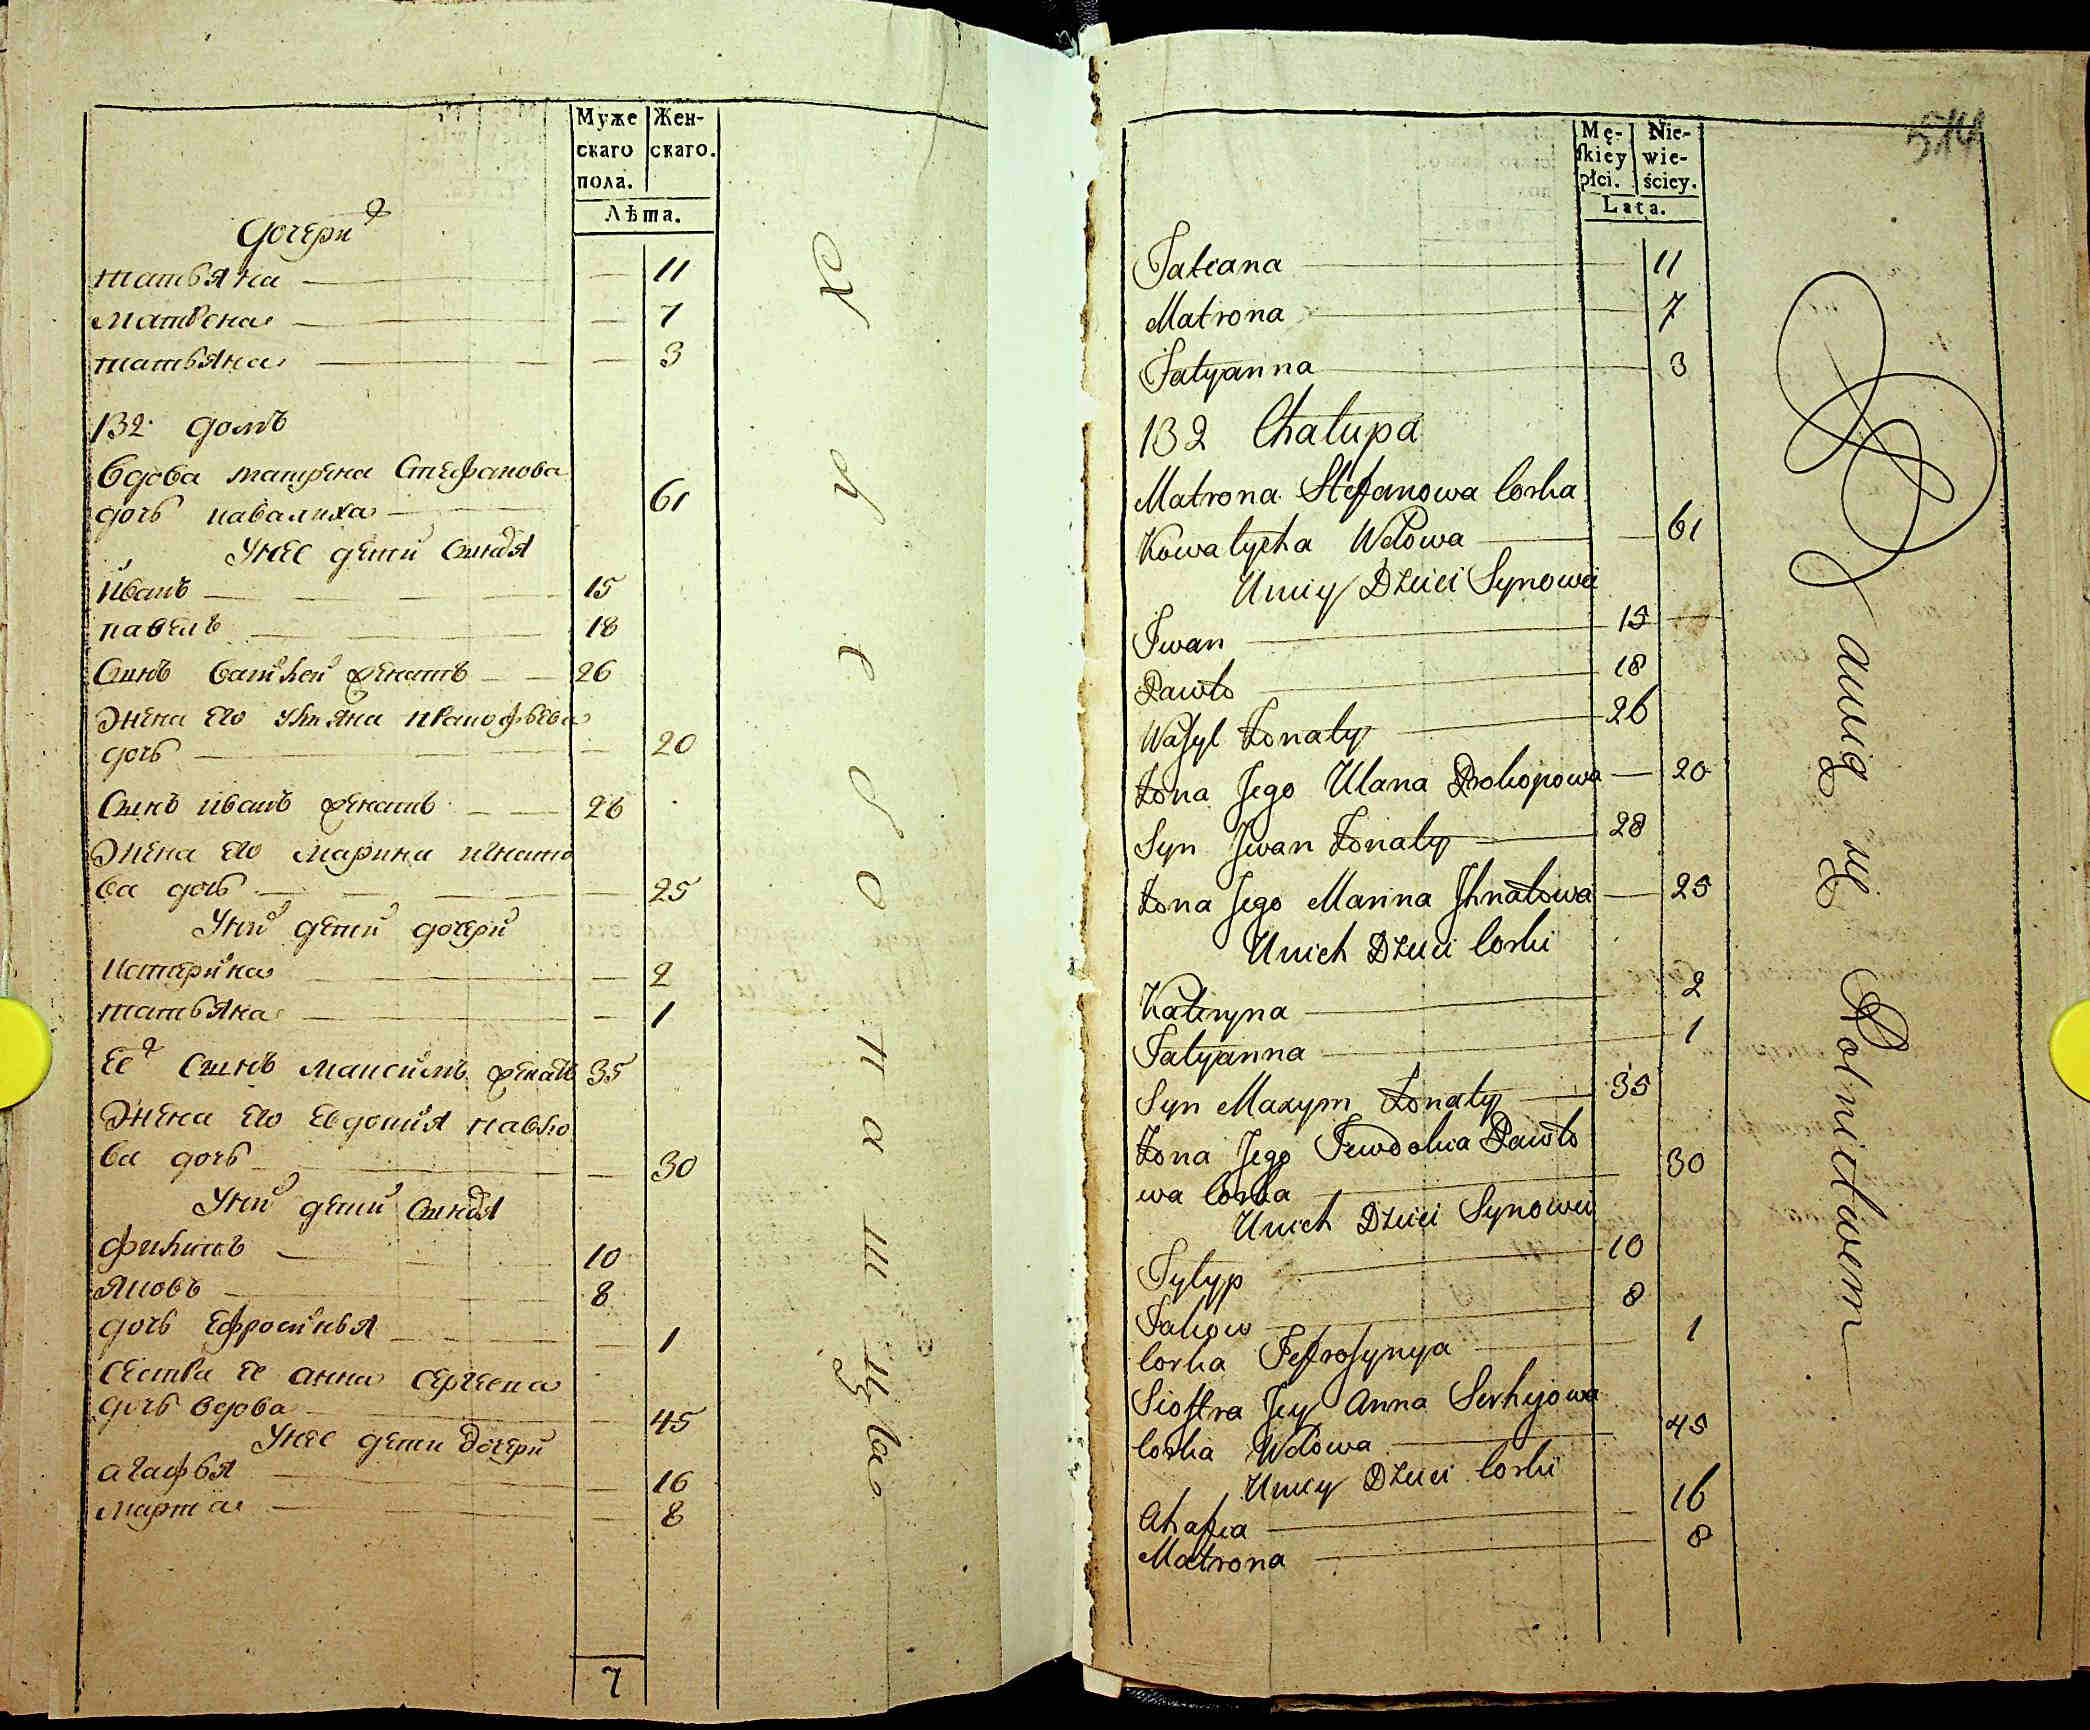 Муже Жен-
скаго скаго.
пола.
Лѣта.
дочери
татьяна — 11
матрена — 7
татьяна — 3
132 домъ
вдова матрена Стефанова
дочь ковалиха — 61
У нее дети Сыновя
иванъ — 15
павелъ — 18
Сынъ василей женатъ — 26
Жена его ульяна прокофьева
дочь — 20
Сынъ иванъ женатъ — 28
Жена его марина игнато
ва дочь — 25
У них дети дочери
катерина — 2
татьяна — 1
Ее Сынъ максимъ женатъ 35
Жена его Евдокия павло
ва дочь — 30
У них дети Сыновя
филипъ — 10
яковъ — 8
дочь Ефросинья — 1
Сестра ее анна Сергеева
дочь вдова — 45
У нее дети дочери
агафья — 16
марта — 8
7
514
Mę- Nie-
skiey wie-
płci. ściey.
Lata.
Tatiana — 11
Matrona — 7
Tatyanna — 3
132 Chałupa
Matrona Stefanowa Corka
Kowalycha Wdowa — 61
U niey Dzieci Synowei
Iwan — 15
Pawło — 18
Wasyl Żonaty — 26
Żona Jego Ulana Prokopowa — 20
Syn Iwan Żonaty — 28
Żona Jego Marina Ihnatowa — 25
U nich Dzieci Corki
Kateryna — 2
Tatyanna — 1
Syn Maxym Żonaty — 35
Żona Jego Iewdokia Pawło
wa Corka — 30
U nich Dzieci Synowie
Fylyp — 10
Jakow — 8
Corka Jefrosynya — 1
Siostra Jey Anna Serhijowa
Corka Wdowa — 45
U niey Dzieci Corki
Ahafia — 16
Matrona — 8
Bawią się Rolnictwem